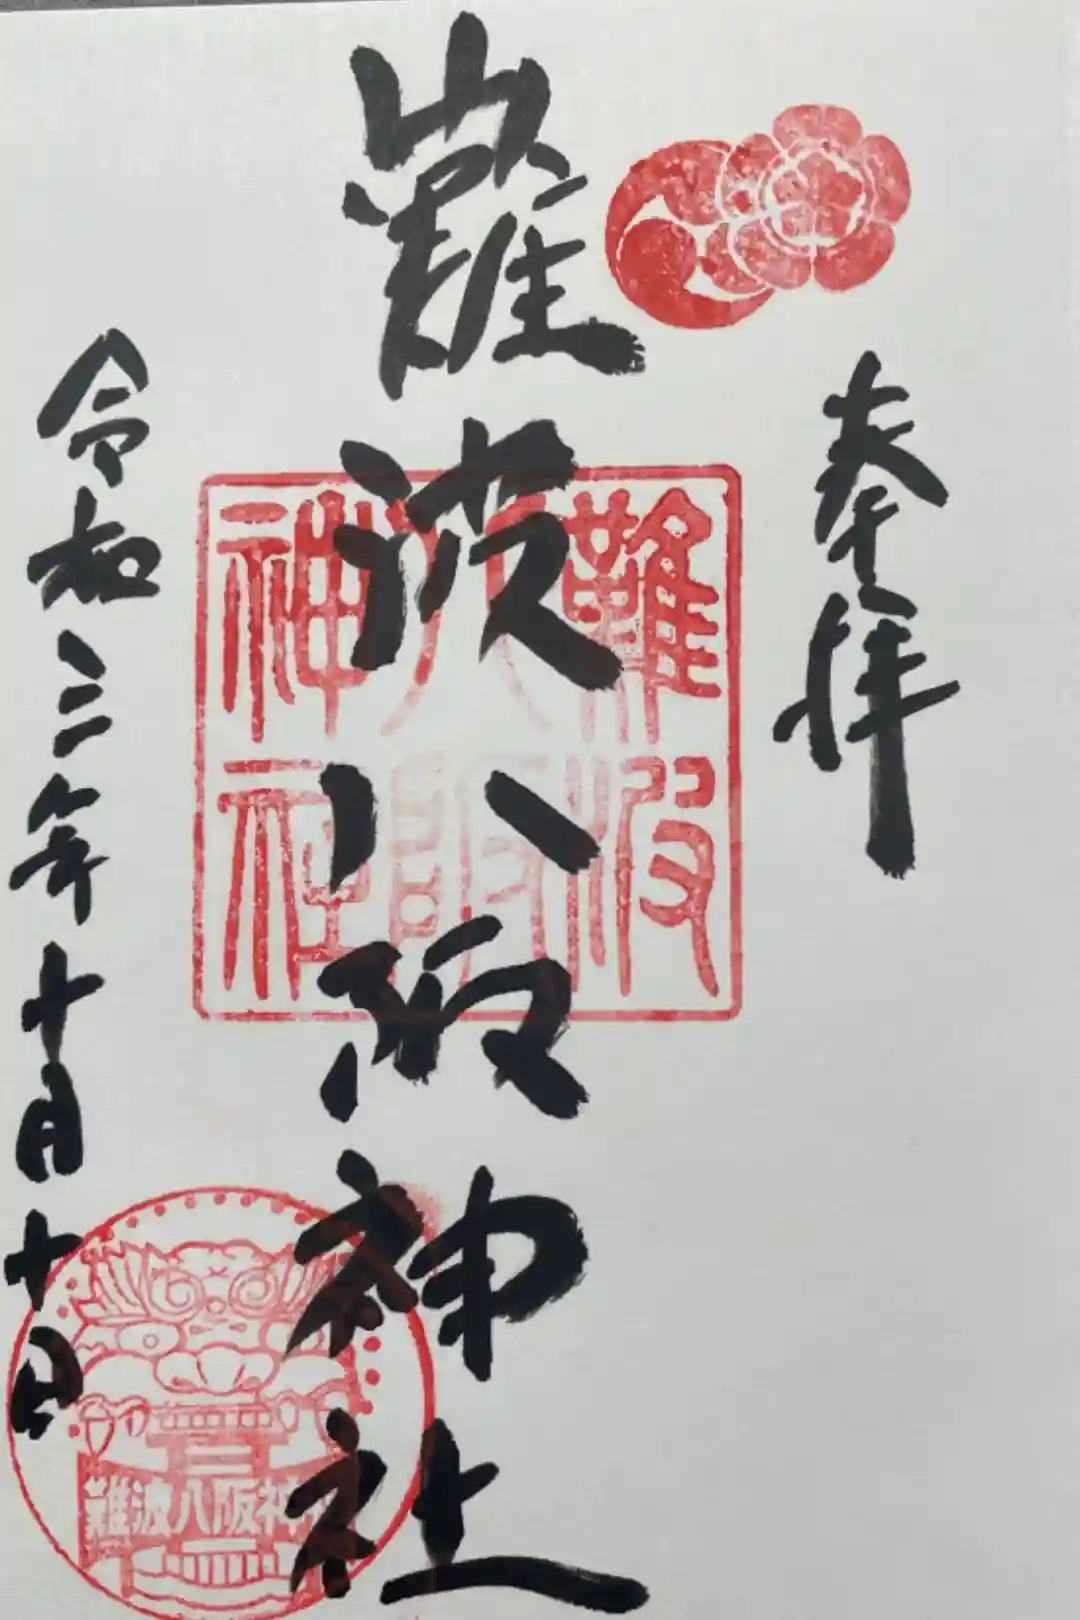 奉拝
難波八阪神社
令和三年十月十日
難波
八阪
神社
難波八阪神社